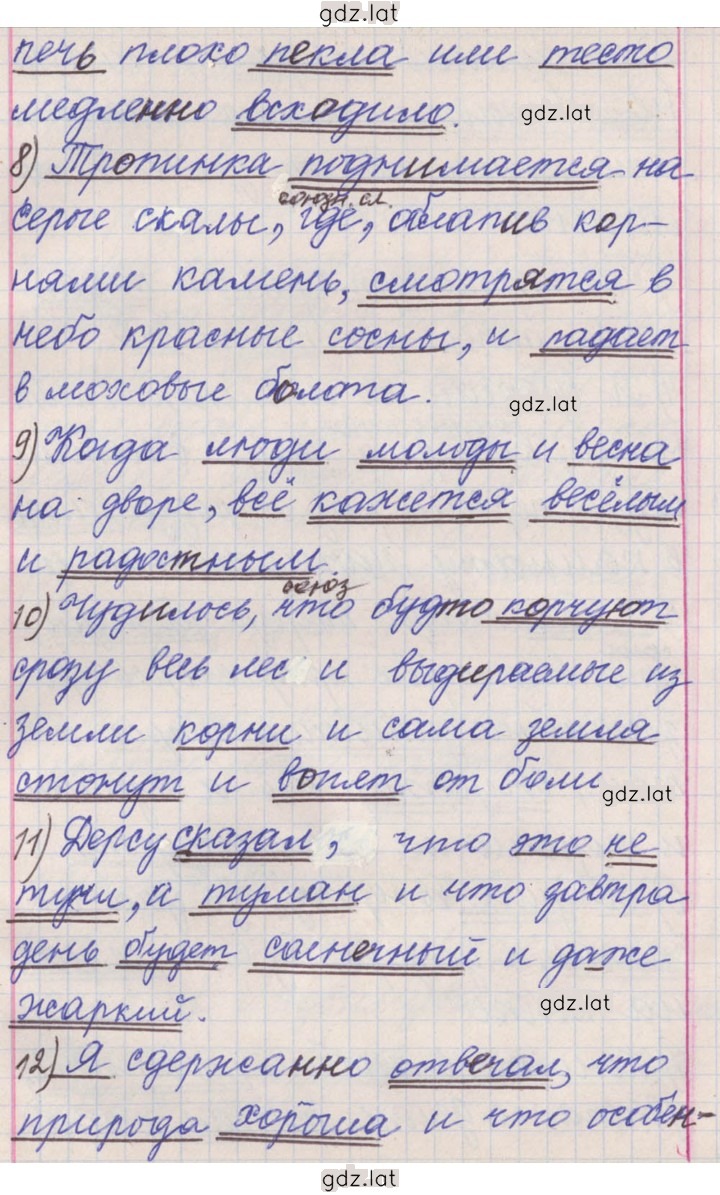 gdz.lat
печь плохо пекла или тесто
медленно всходило.
gdz.lat
8) Тропинка поднимается на
союзн. сл.
серые скалы, где, облапив кор-
нями камень, смотрятся в
небо красные сосны, и падает
в моховые болота.
gdz.lat
9) Когда люди молоды и весна
на дворе, всё кажется весёлым
и радостным.
союз
10) Чудилось, что будто корчуют
сразу весь лес и выдираемые из
земли корни и сама земля
стонут и вопят от боли
gdz.lat
11) Дерсу сказал, что это не
тучи, а туман и что завтра
день будет солнечный и даже
жаркий.
gdz.lat
12) Я сдержанно отвечал, что
природа хороша и что особен-
gdz.lat